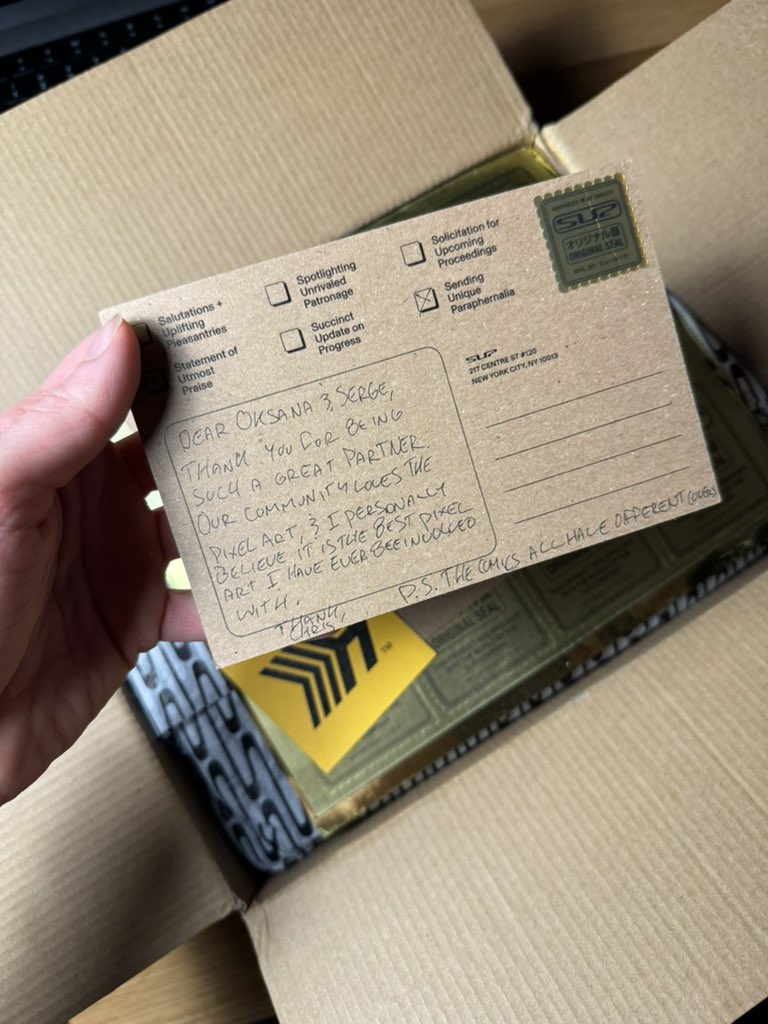 Salutations +
Uplifting
Pleasantries
Statement of
Utmost
Praise
Spotlighting
Unrivaled
Patronage
Succinct
Update on
Progress
Solicitation for
Upcoming
Proceedings
Sending
Unique
Paraphernalia
SUP
オリジナル証
ORIGINAL SEAL
SUP
217 CENTRE ST #120
NEW YORK CITY, NY 10013
DEAR OKSANA & SERGE,
THANK YOU FOR BEING
SUCH A GREAT PARTNER.
OUR COMMUNITY LOVES THE
PIXEL ART, & I PERSONALLY
BELIEVE IT IS THE BEST PIXEL
ART I HAVE EVER BEEN INVOLVED
WITH.
THANK,
CHRIS
P.S. THE COMICS ALL HAVE DIFFERENT COVERS
ORIGINAL SEAL
TM